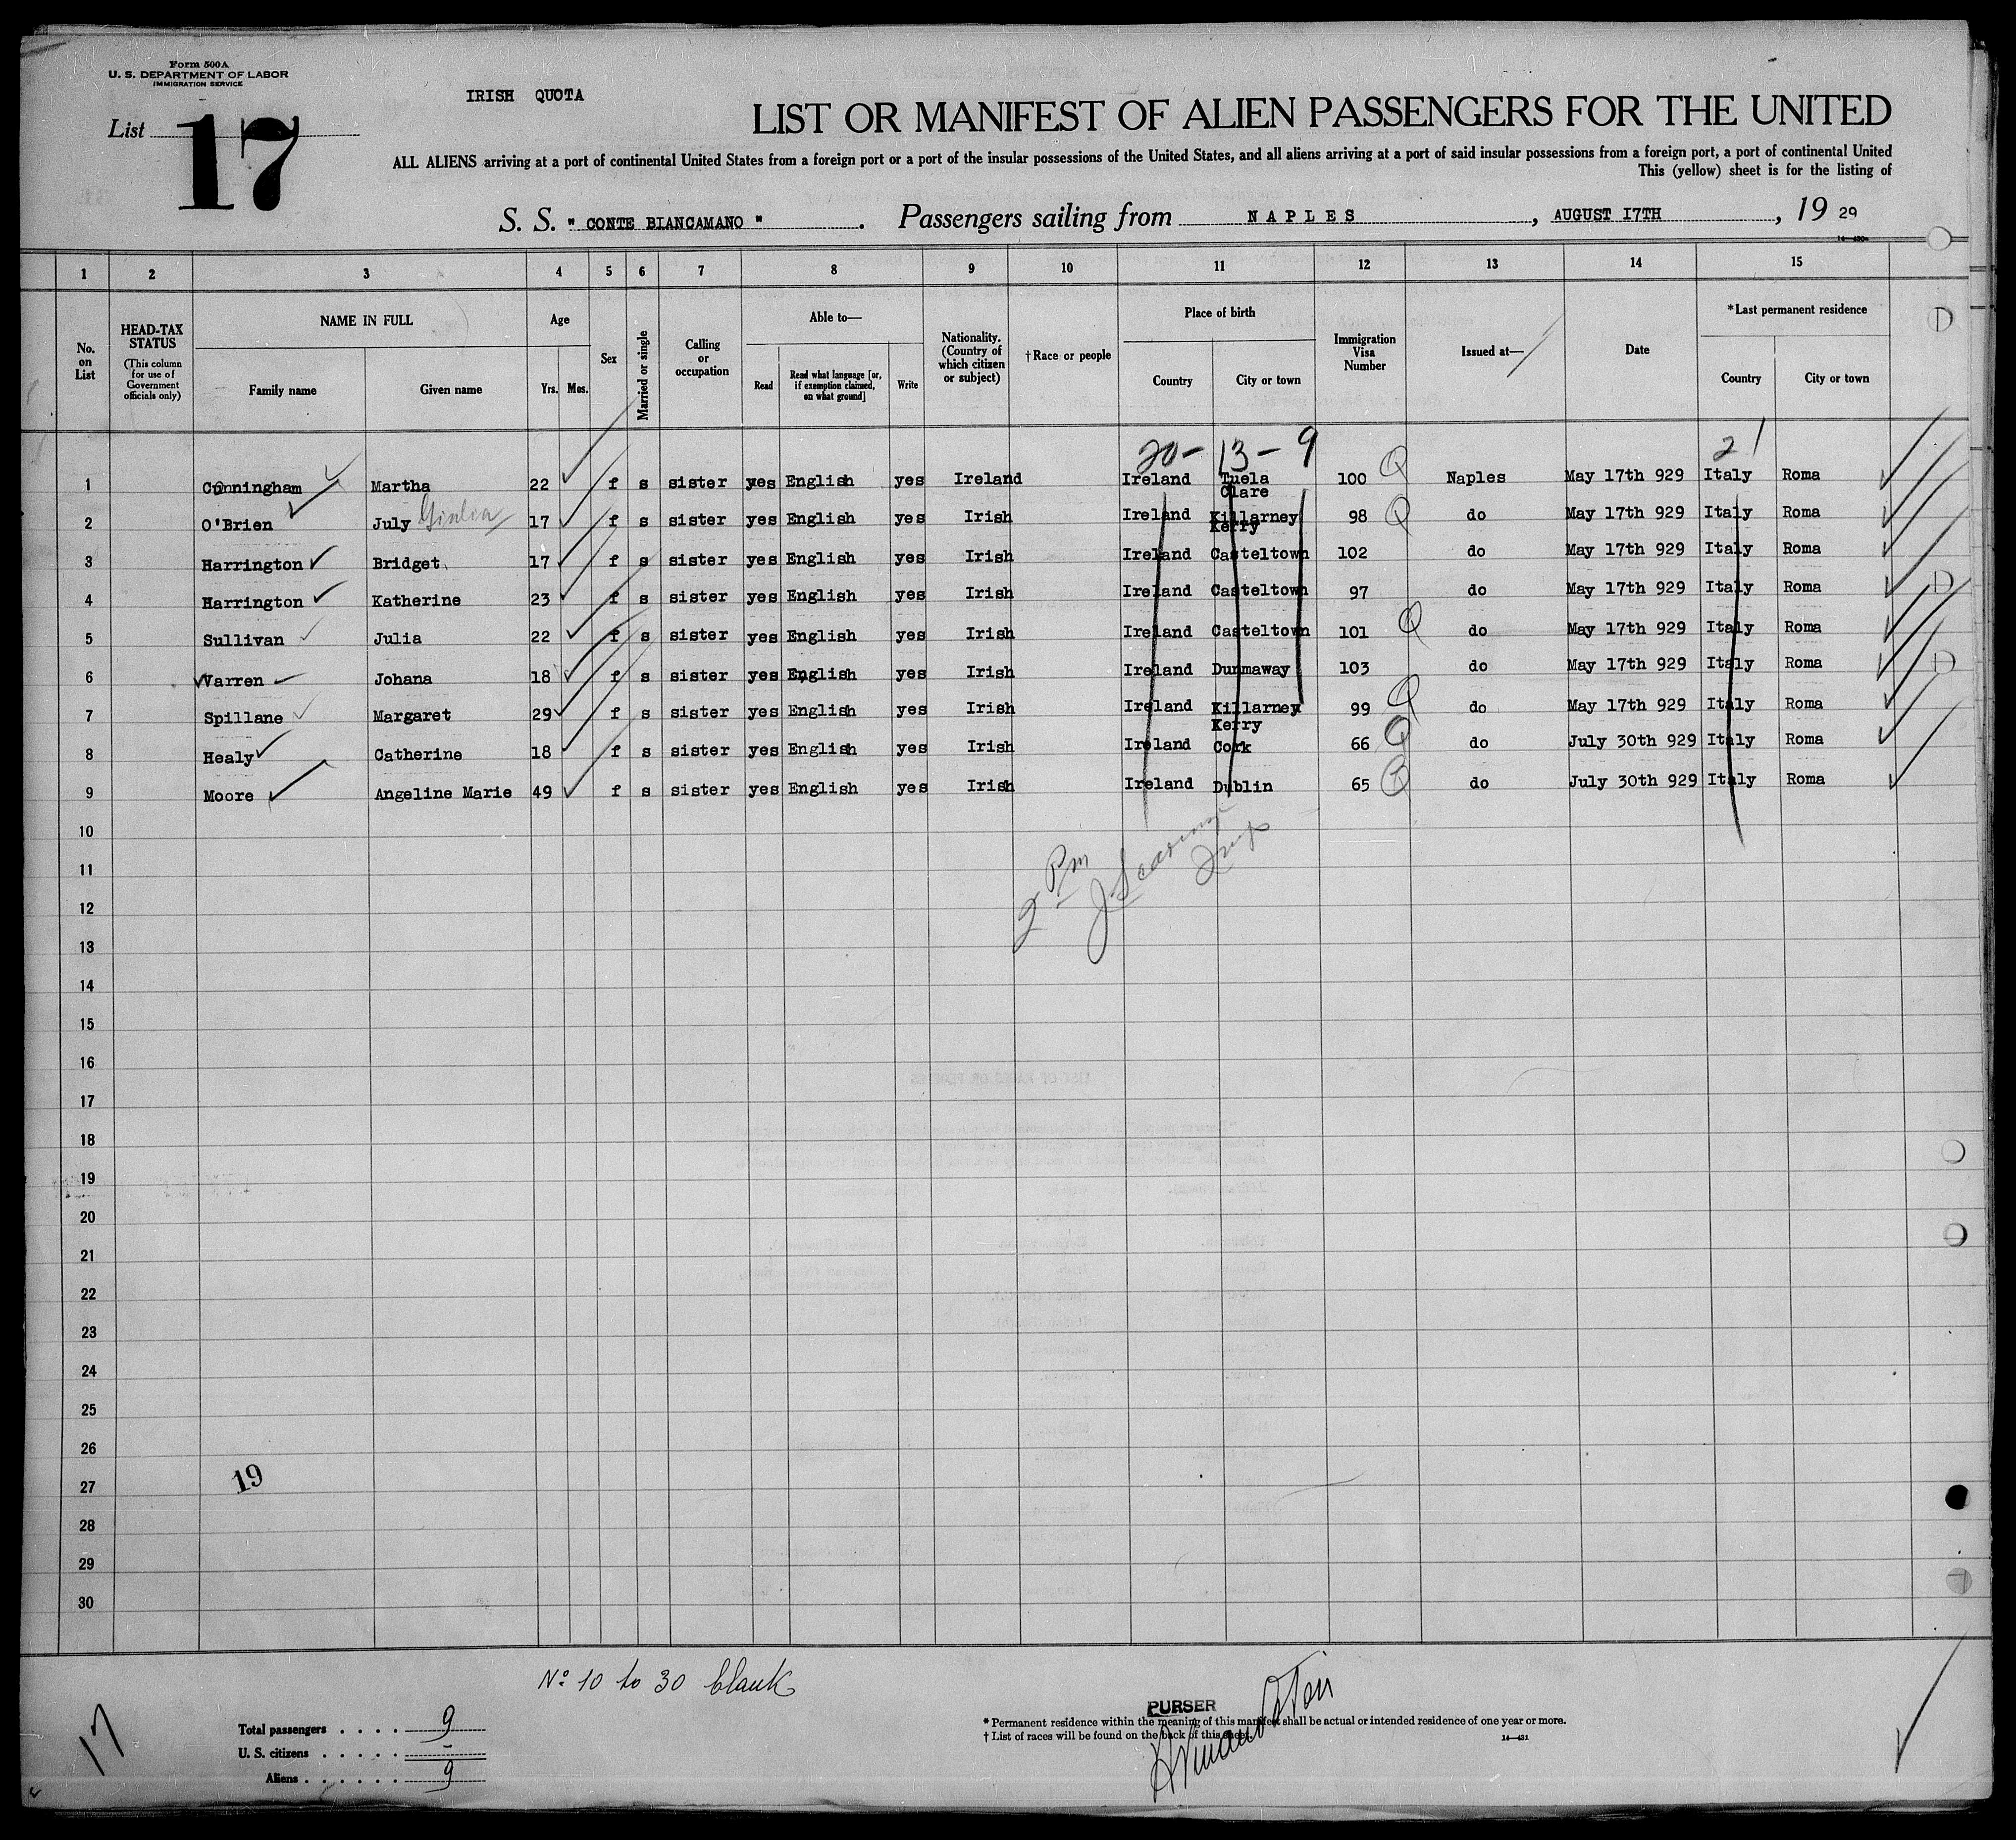 Form 500A
U. S. DEPARTMENT OF LABOR
IMMIGRATION SERVICE
IRISH QUOTA
List 17
LIST OR MANIFEST OF ALIEN PASSENGERS FOR THE UNITED
ALL ALIENS arriving at a port of continental United States from a foreign port or a port of the insular possessions of the United States, and all aliens arriving at a port of said insular possessions from a foreign port, a port of continental United
This (yellow) sheet is for the listing of
S. S. "CONTE BIANCAMANO". Passengers sailing from NAPLES, AUGUST 17TH, 19 29
1 2 3 4 5 6 7 8 9 10 11 12 13 14 15
No. on List
HEAD-TAX STATUS
(This column for use of Government officials only)
NAME IN FULL
Family name Given name
Age
Yrs. Mos.
Sex
Married or single
Calling or occupation
Able to—
Read
Read what language [or, if exemption claimed, on what ground]
Write
Nationality. (Country of which citizen or subject)
†Race or people
Place of birth
Country City or town
Immigration Visa Number
Issued at—
Date
*Last permanent residence
Country City or town
20- 13- 9 21
1 Cunningham Martha 22 f s sister yes English yes Ireland Ireland Tuela 100 Q Naples May 17th 929 Italy Roma
Clare
2 O'Brien July Giulia 17 f s sister yes English yes Irish Ireland Killarney 98 Q do May 17th 929 Italy Roma
Kerry
3 Harrington Bridget 17 f s sister yes English yes Irish Ireland Casteltown 102 do May 17th 929 Italy Roma
4 Harrington Katherine 23 f s sister yes English yes Irish Ireland Casteltown 97 do May 17th 929 Italy Roma
5 Sullivan Julia 22 f s sister yes English yes Irish Ireland Casteltown 101 Q do May 17th 929 Italy Roma
6 Varren Johana 18 f s sister yes English yes Irish Ireland Dunmaway 103 do May 17th 929 Italy Roma
7 Spillane Margaret 29 f s sister yes English yes Irish Ireland Killarney 99 Q do May 17th 929 Italy Roma
Kerry
8 Healy Catherine 18 f s sister yes English yes Irish Ireland Cork 66 Q do July 30th 929 Italy Roma
9 Moore Angeline Marie 49 f s sister yes English yes Irish Ireland Dublin 65 do July 30th 929 Italy Roma
10
11
2 Pm
12
13
14
15
16
17
18
19
20
21
22
23
24
25
26
19
27
28
29
30
Nº 10 to 30 blank
17
Total passengers . . . . 9
U. S. citizens . . . . . -
Aliens . . . . . . 9
PURSER
* Permanent residence within the meaning of this manifest shall be actual or intended residence of one year or more.
† List of races will be found on the back of this sheet.
14—431